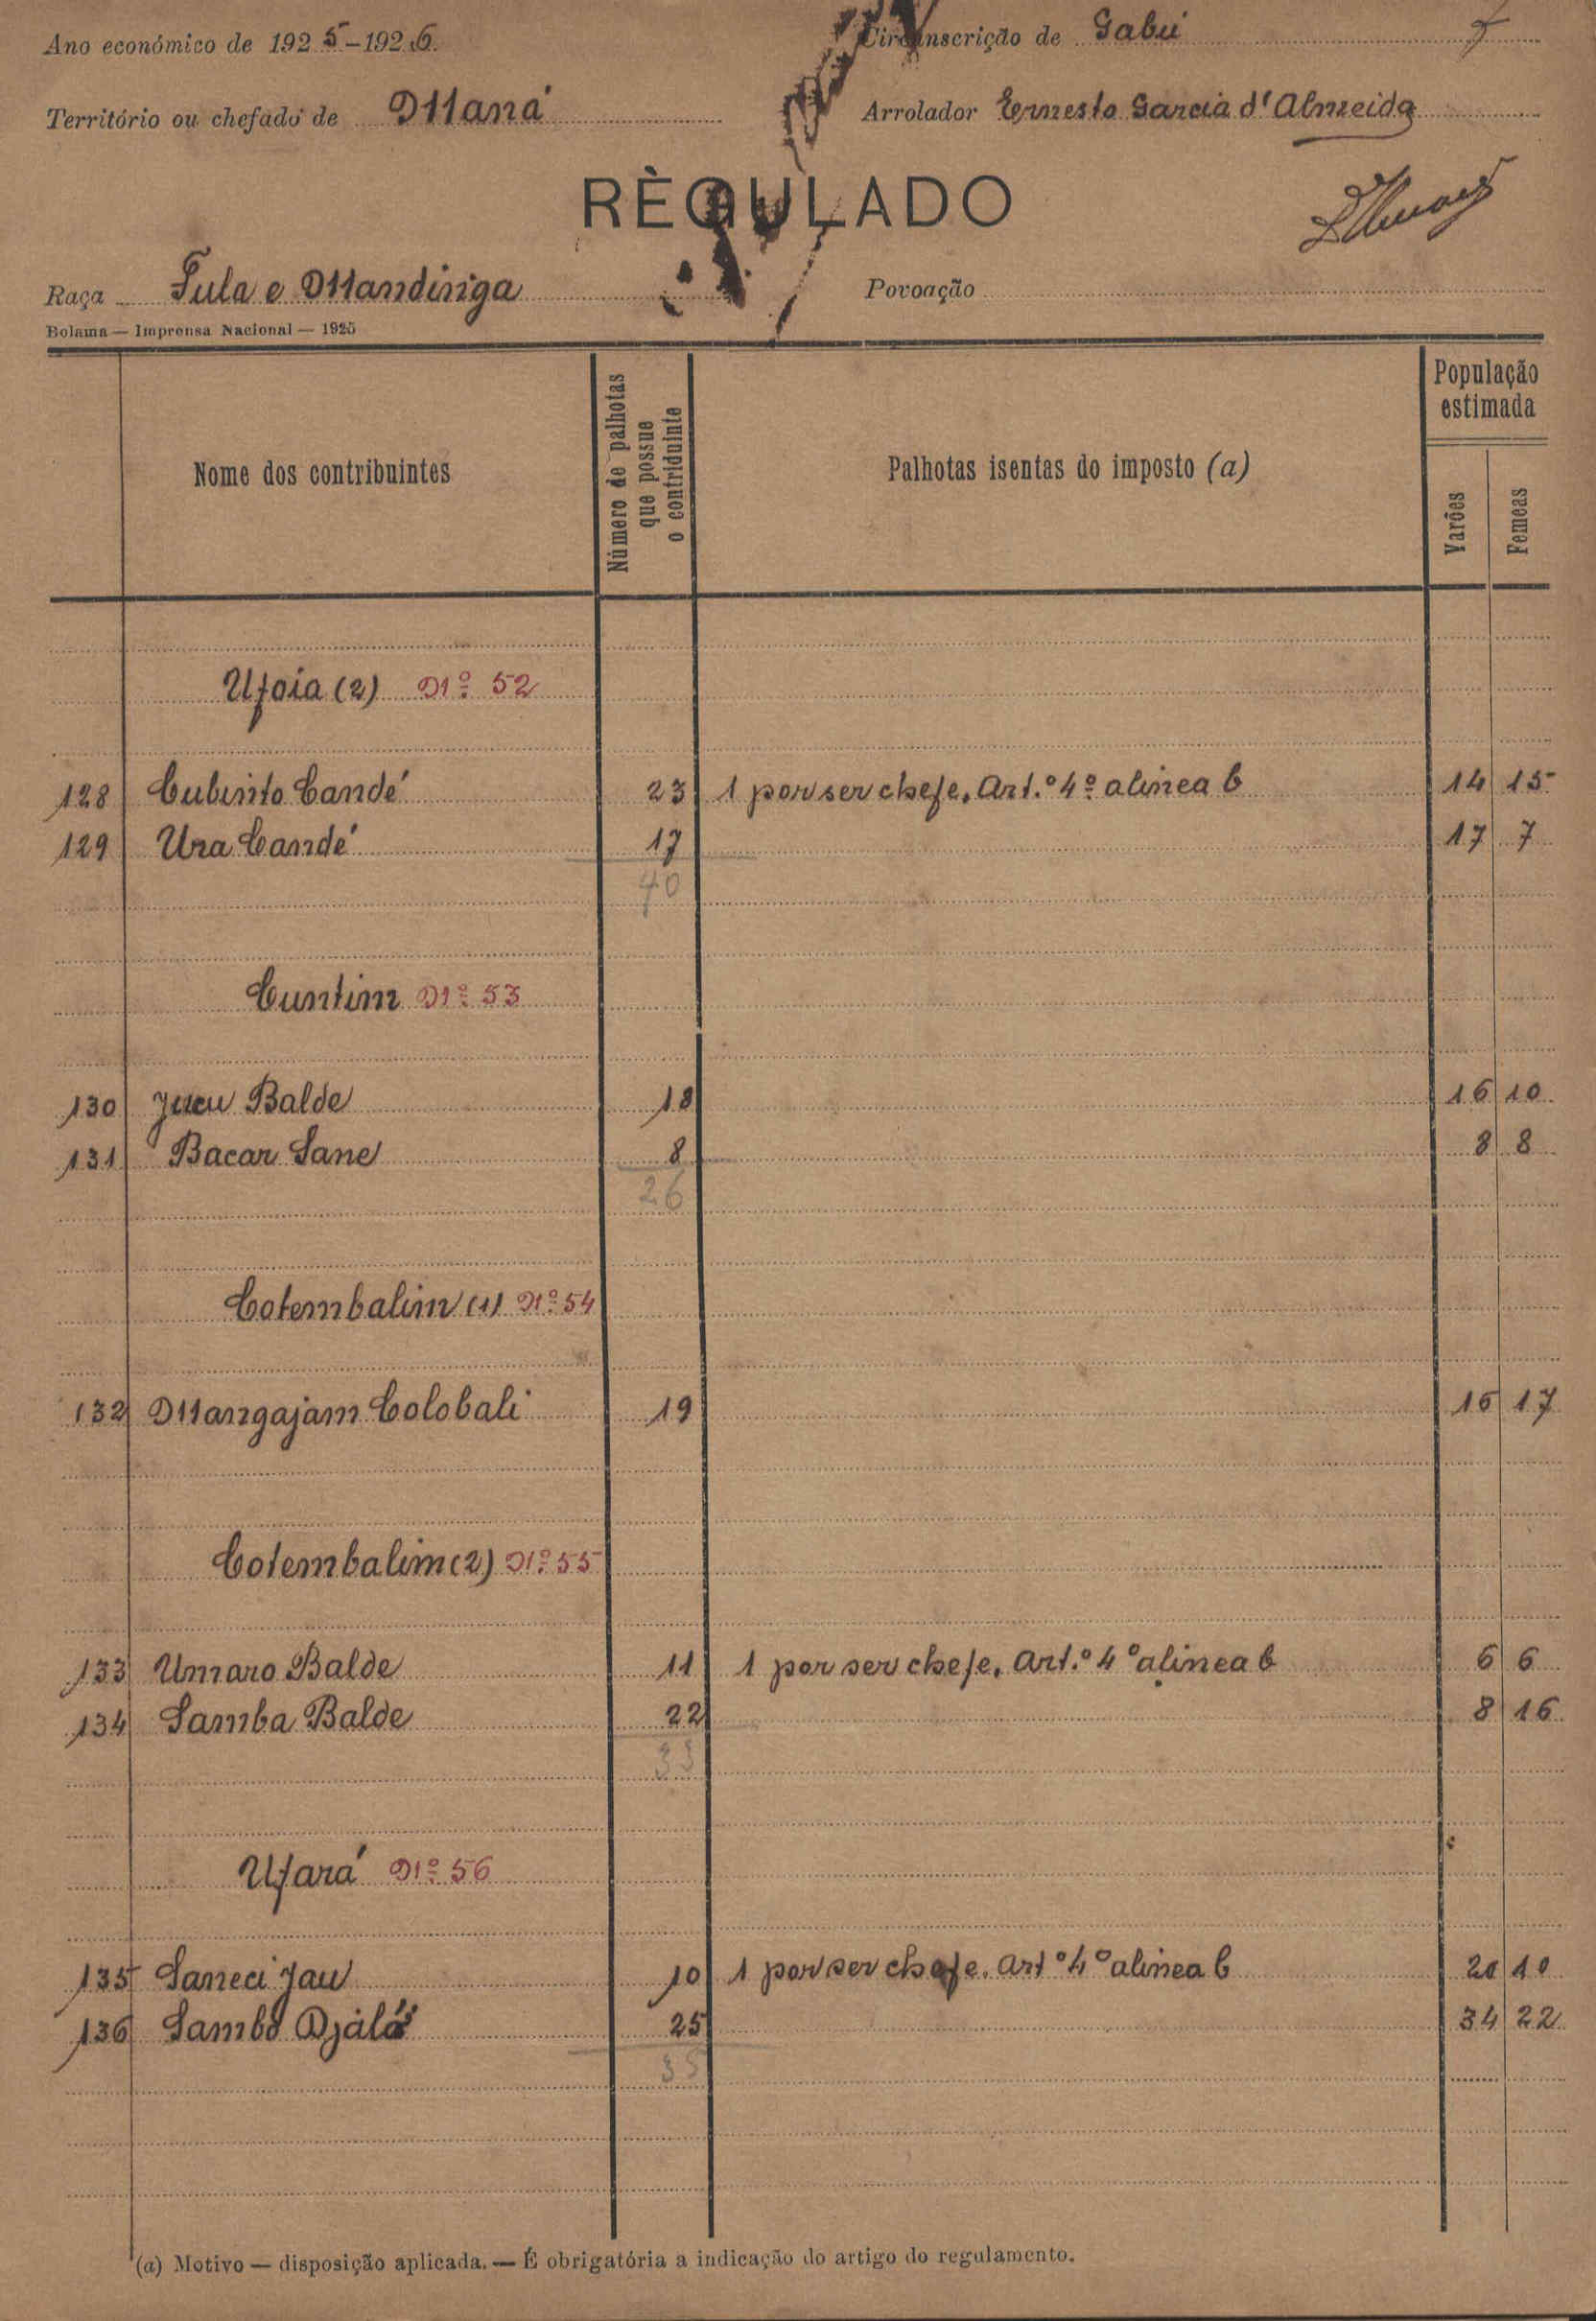 Ano económico de 1925-1926. Circunscrição de Gabú 7
Território ou chefado de Maná Arrolador Ernesto Garcia d'Almeida
RÈGULADO
Raça Fula e Mandinga Povoação
Bolama — Imprensa Nacional — 1925
Nome dos contribuintes
Número de palhotas que possue o contriduinte
Palhotas isentas do imposto (a)
População estimada
Varões
Femeas
Ufoia (2) Nº 52
128 Cubinto Candé 23 1 por ser chefe. Art.º 4º alinea b 14 15
129 Ura Candé 17 17 7
40
Cuntim Nº 53
130 Jucu Balde 18 16 10
131 Bacar Sane 8 8 8
26
Cotembalim (1) Nº 54
132 Mangajam Colobali 19 16 17
Cotembalim (2) Nº 55
133 Umaro Balde 11 1 por ser chefe. Art.º 4º alinea b 6 6
134 Samba Balde 22 8 16
33
Ufará Nº 56
135 Saneci Jau 10 1 por ser chefe. Art º 4º alinea b 20 10
136 Sambo Djáló 25 34 22
35
(a) Motivo — disposição aplicada. — É obrigatória a indicação do artigo do regulamento.